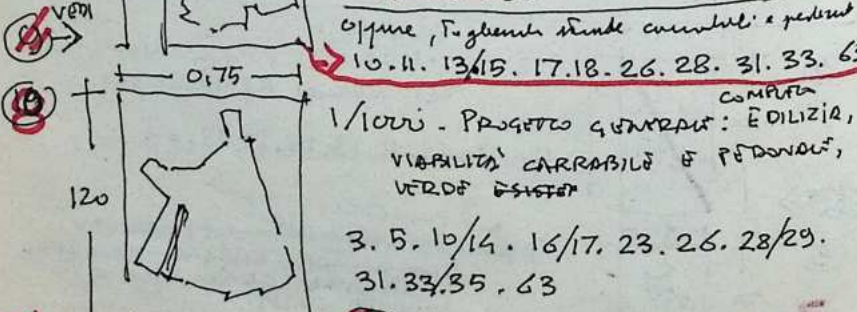 VEDI
oppure, togliendo strade carrabili e pedonali
10.11. 13/15. 17.18. 26. 28. 31. 33. 63
0,75
10
COMPLETO
1/1000 - PROGETTO GENERALE: EDILIZIA,
VIABILITÀ CARRABILE E PEDONALE,
VERDE ESISTEN
120
3. 5. 10/14. 16/17. 23. 26. 28/29.
31. 33/35. 63